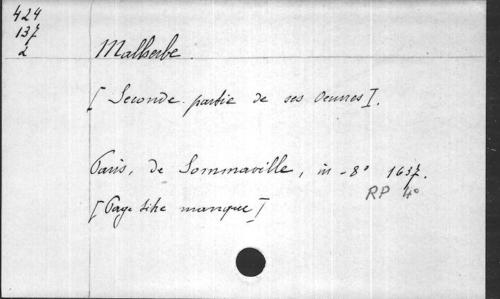 424
137
2
Malherbe.
[Seconde partie de ses Oeuvres].
Paris, de Sommaville, in-8° 1637.
RP 4°
[Page titre manque]